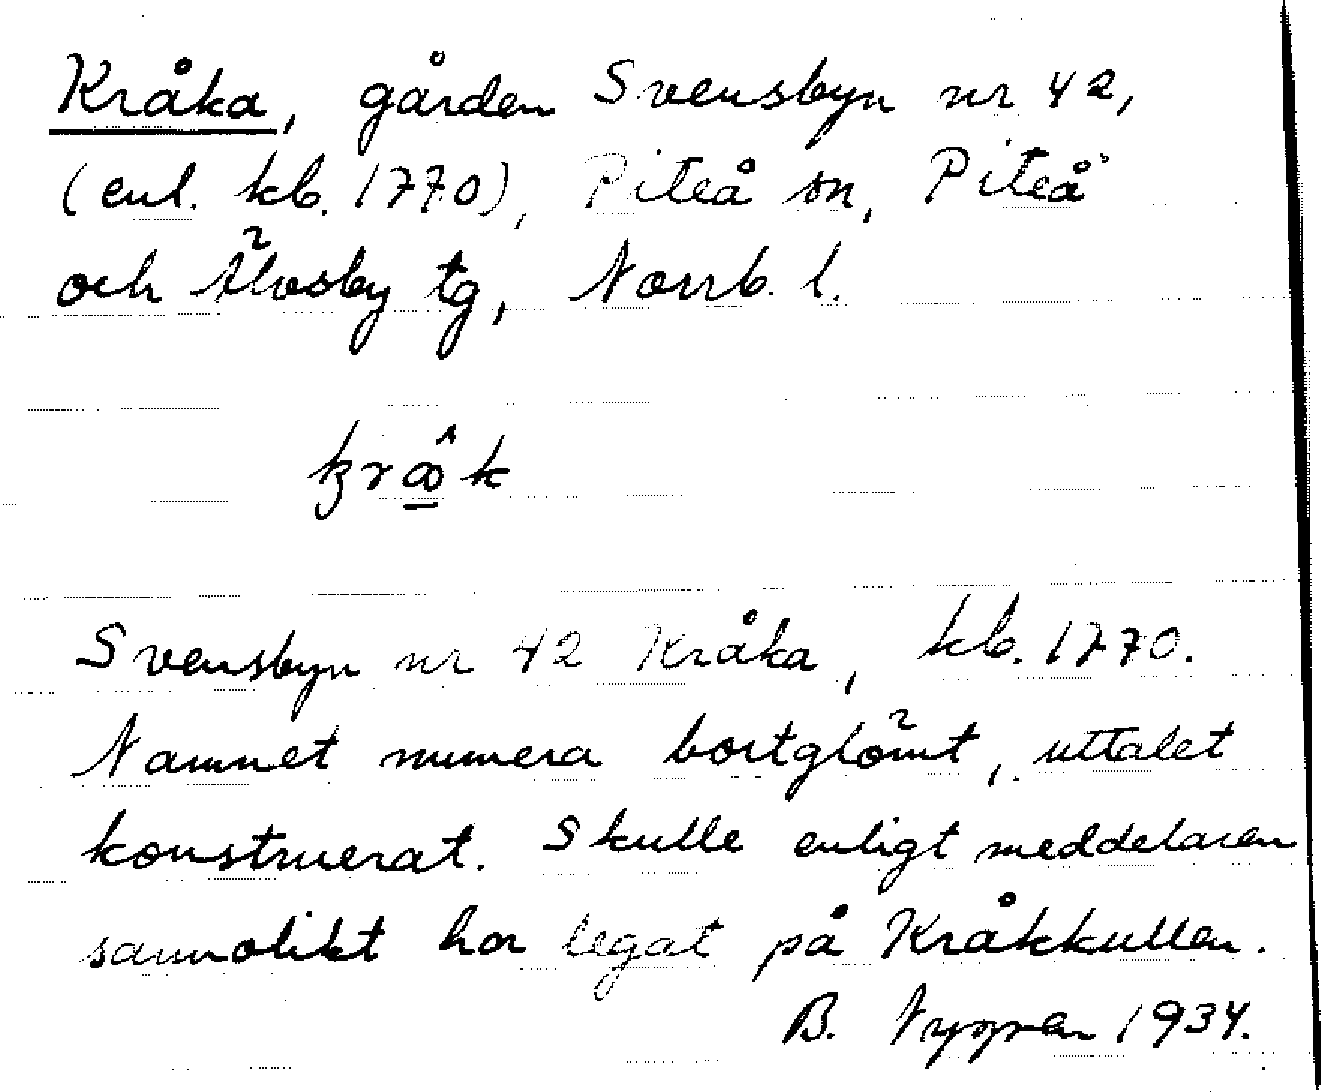 Kråka, gården Svensbyn nr 42,
(enl. kb. 1770), Piteå sn, Piteå
och Älvsby tg, Norrb. l.
Svensbyn nr 42 Kråka, kb. 1770.
Namnet numera bortglömt, uttalet
konstruerat. Skulle enligt meddelaren
sannolikt ha legat på Kråkkullen.
B. Nygren 1934.